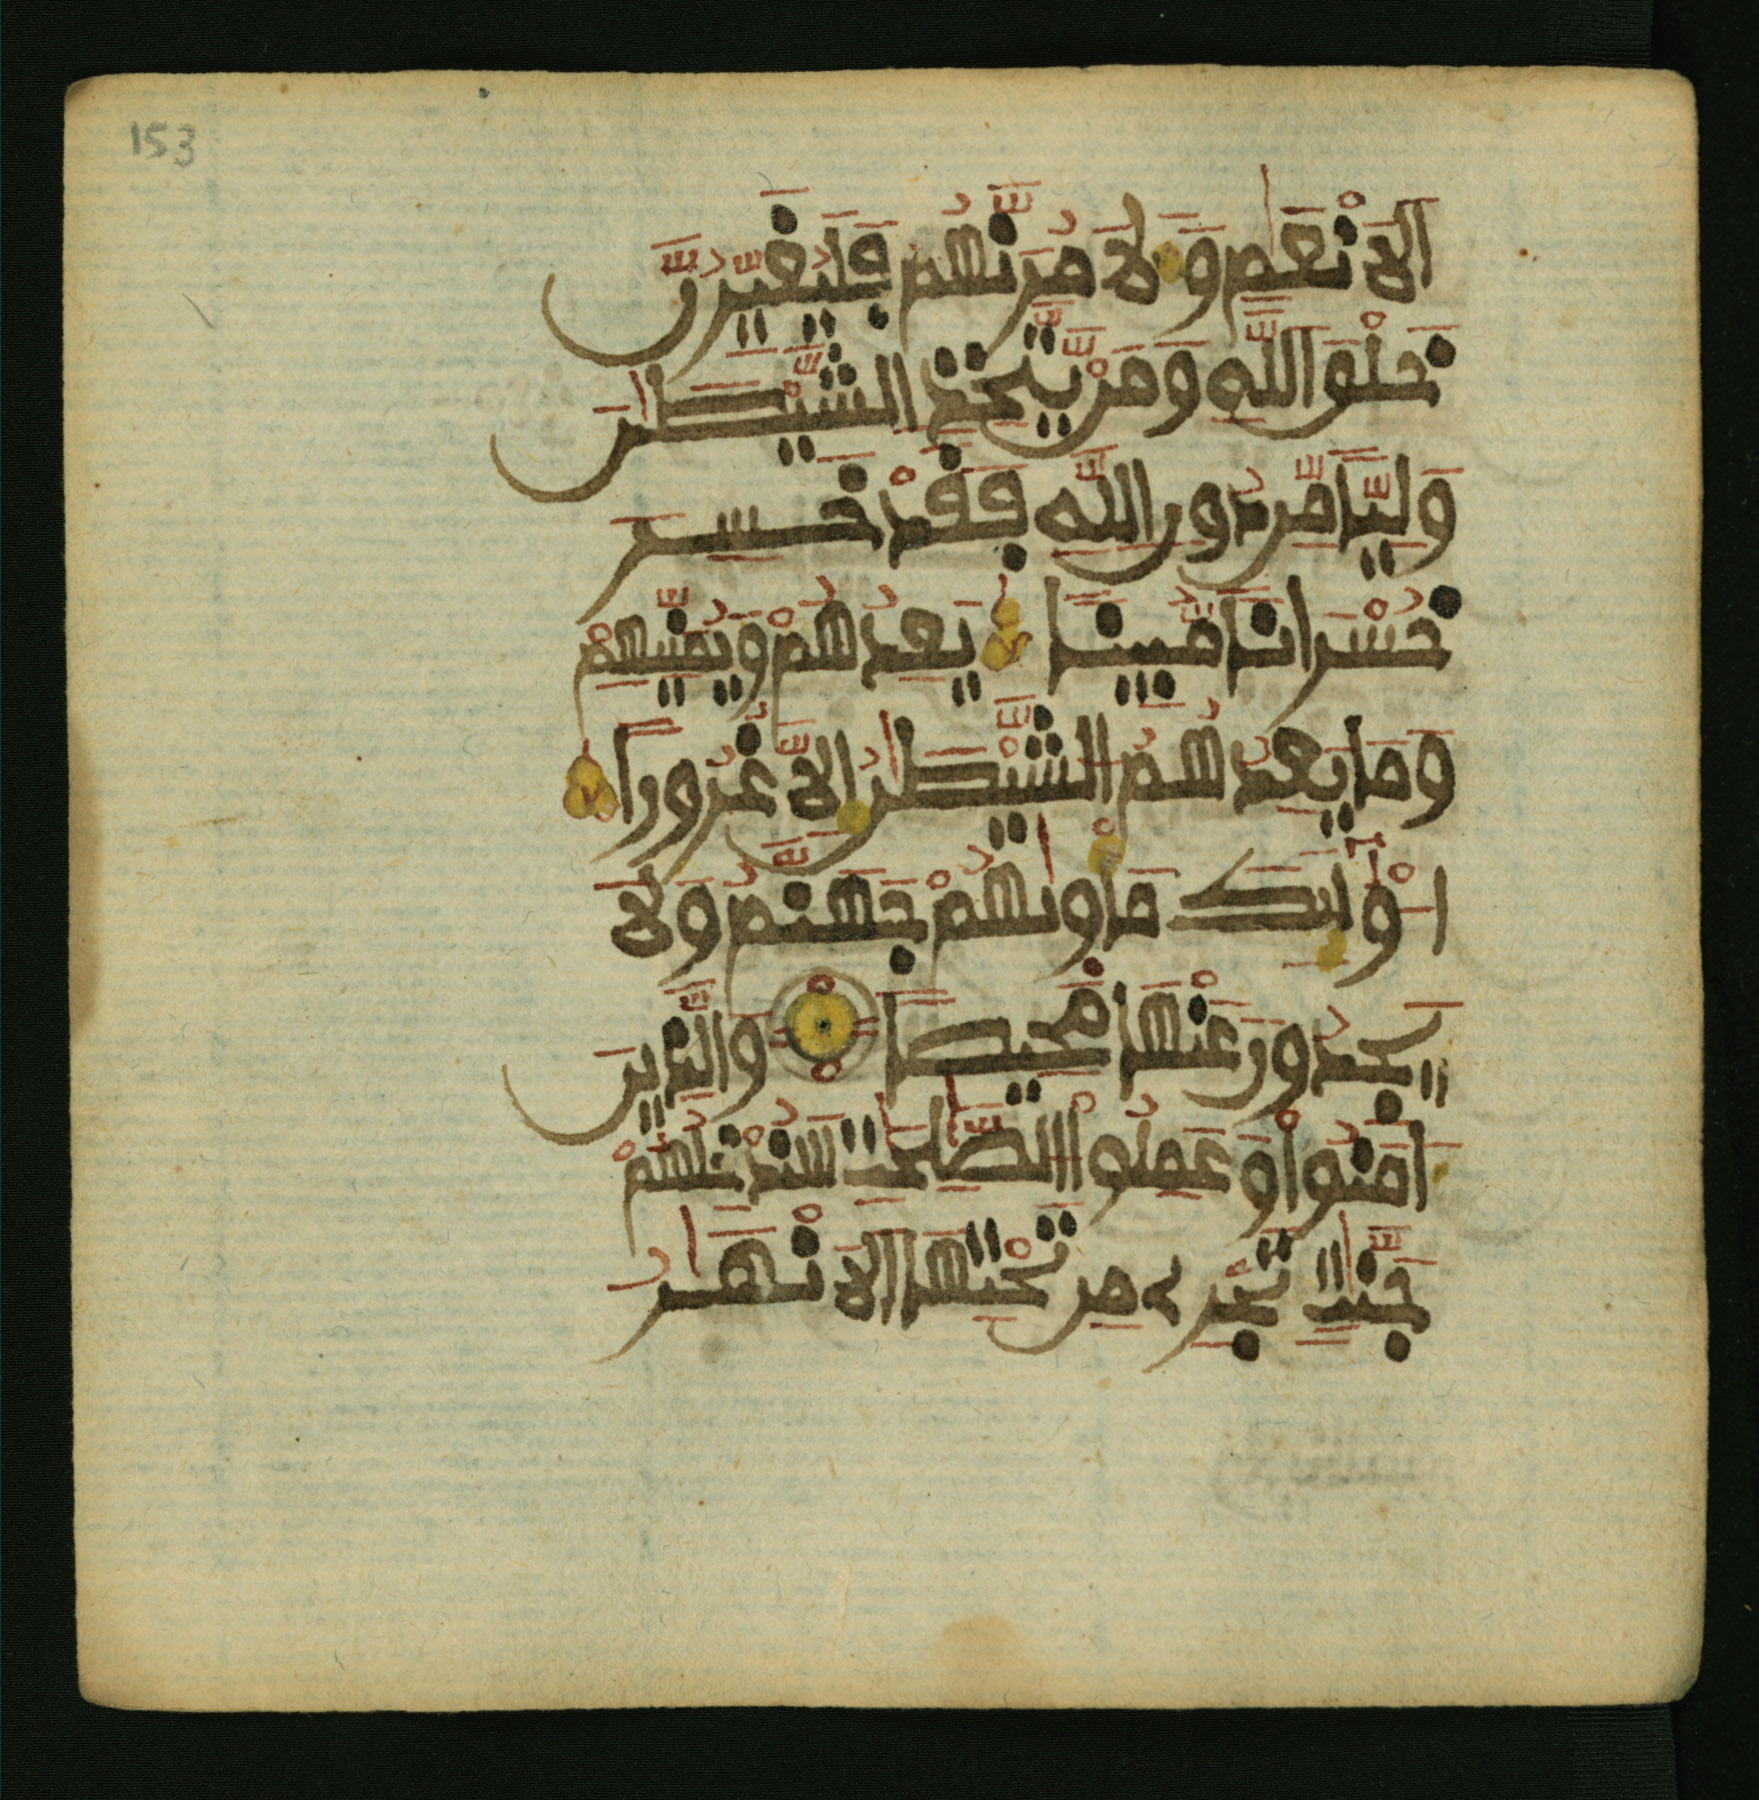 153
الانعم ولامرنهم فليغيرن
خلق الله ومن يتخذ الشيطن
وليا من دون الله فقد خسر
خسرانا مبينا يعدهم ويمنيهم
وما يعدهم الشيطن الا غرورا
اولئك ماويهم جهنم ولا
يجدون عنها محيصا والذين
امنوا وعملوا الصلحت سندخلهم
جنت تجرے من تحتها الانهر